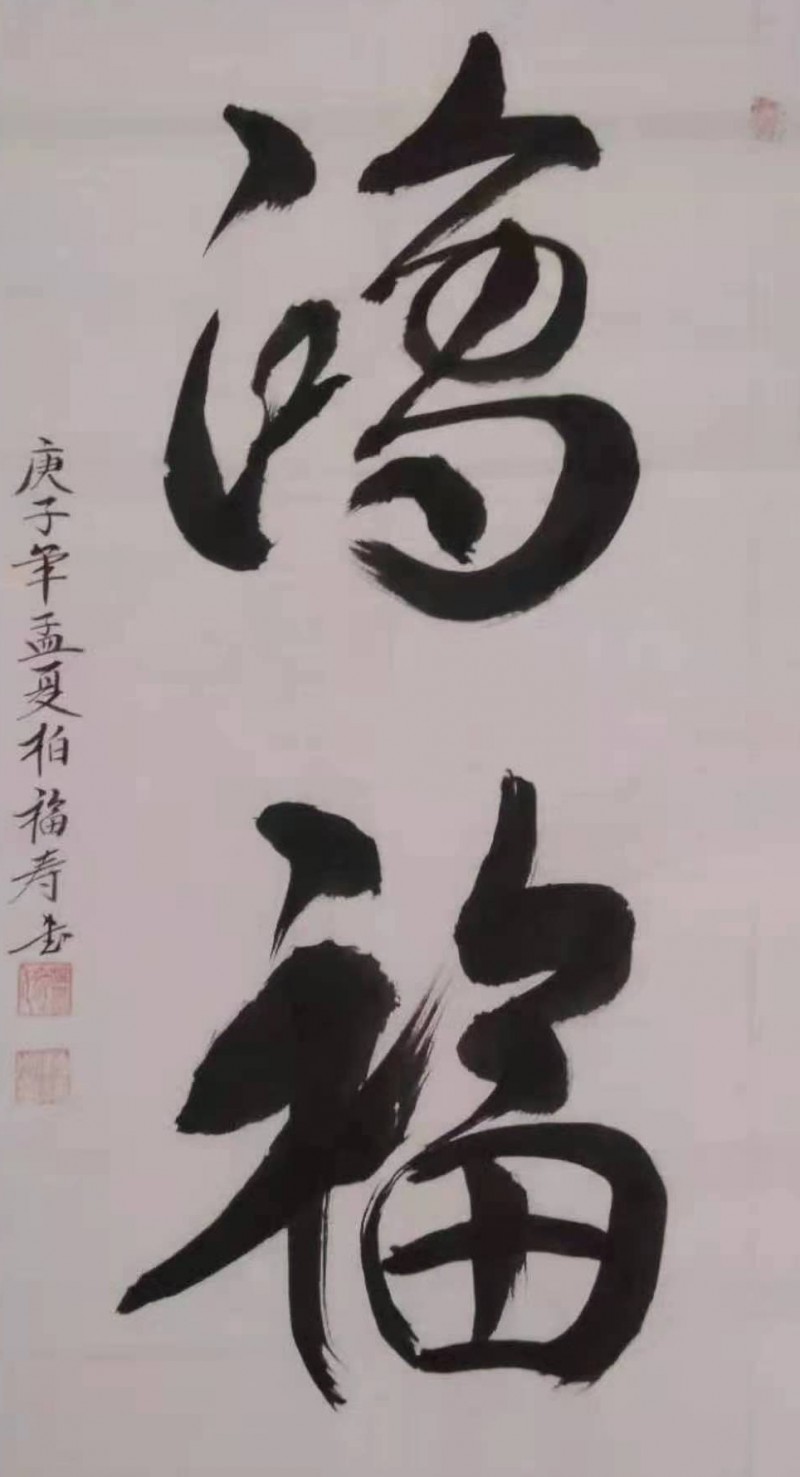 鸿福
庚子年孟夏柏福寿书